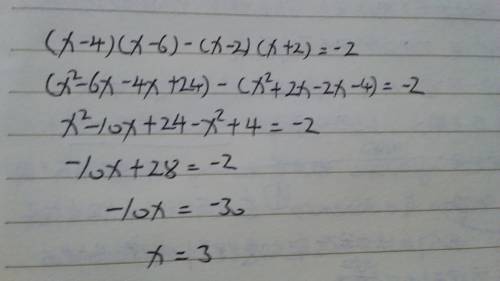 (x-4)(x-6)-(x-2)(x+2)=-2
(x²-6x-4x+24)-(x²+2x-2x-4)=-2
x²-10x+24-x²+4=-2
-10x+28=-2
-10x=-30
x=3